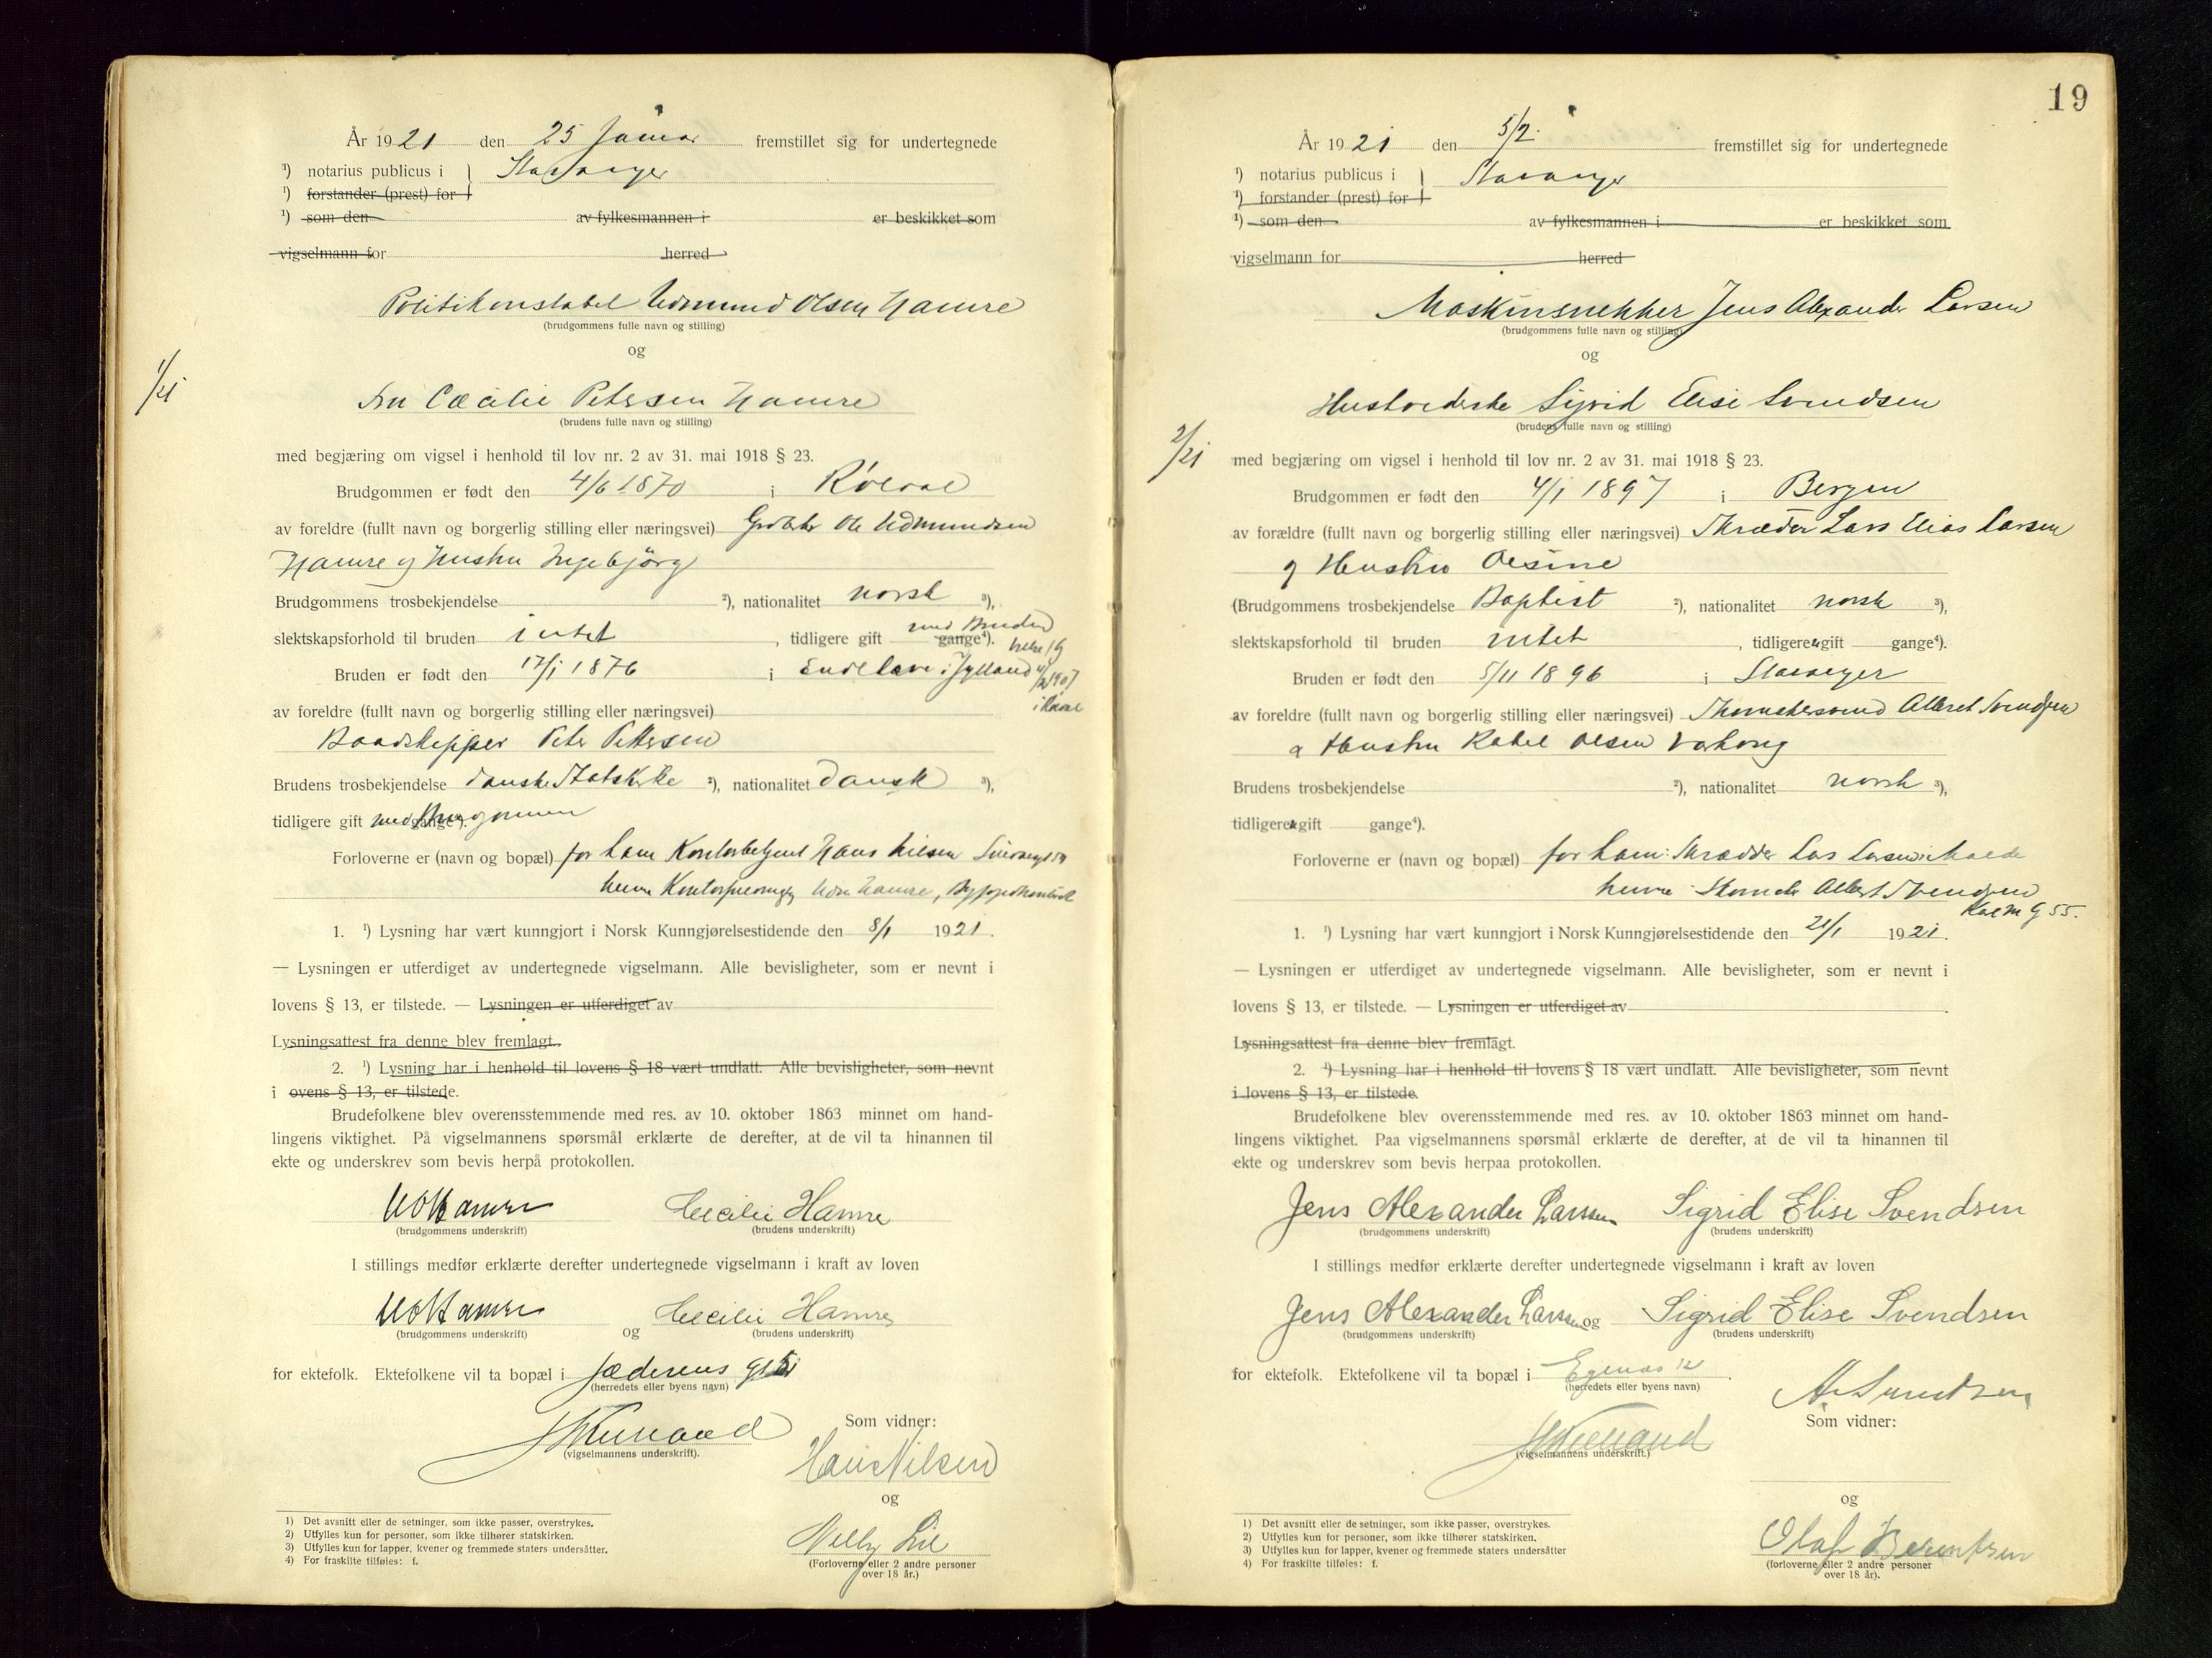 År 1921 den 25 Januar fremstillet sig for undertegnede
¹) notarius publicus i } Stavanger
¹) forstander (prest) for
¹) som den av fylkesmannen i er beskikket som
vigselmann for herred
Politikonstabel Udmund Olsen Hamre
(brudgommens fulle navn og stilling)
og
1/21
Fru Cæcilie Petersen Hamre
(brudens fulle navn og stilling)
med begjæring om vigsel i henhold til lov nr. 2 av 31. mai 1918 § 23.
Brudgommen er født den 4/6 1870 i
av foreldre (fullt navn og borgerlig stilling eller næringsvei) Ole Udmundsen
Hamre og Hustru Ingebjörg
Brudgommens trosbekjendelse ²), nationalitet norsk ³),
slektskapsforhold til bruden intet, tidligere gift med Bruden gange⁴).
Bruden er født den 17/1 1876 i Endelave i Jylland
av foreldre (fullt navn og borgerlig stilling eller næringsvei)
Baadskipper Peter Pettersen
Brudens trosbekjendelse danske Statskirke ²), nationalitet Dansk ³),
tidligere gift med Brudgommen gange⁴).
Forloverne er (navn og bopæl) for ham Kontorbetjent Hans Nilsen
henne Hamre,
1. ¹) Lysning har vært kunngjort i Norsk Kunngjørelsestidende den 8/1 1921.
— Lysningen er utferdiget av undertegnede vigselmann. Alle bevisligheter, som er nevnt i
lovens § 13, er tilstede. — Lysningen er utferdiget av
Lysningsattest fra denne blev fremlagt.
2. ¹) Lysning har i henhold til lovens § 18 vært undlatt. Alle bevisligheter, som nevnt
i ovens § 13, er tilstede.
Brudefolkene blev overensstemmende med res. av 10. oktober 1863 minnet om hand-
lingens viktighet. På vigselmannens spørsmål erklærte de derefter, at de vil ta hinannen til
ekte og underskrev som bevis herpå protokollen.
UOHamre Cecilie Hamre
(brudgommens underskrift) (brudens underskrift)
I stillings medfør erklærte derefter undertegnede vigselmann i kraft av loven
UOHamre og Cecilie Hamre
(brudgommens underskrift) (brudens underskrift)
for ektefolk. Ektefolkene vil ta bopæl i Jæderens
(herredets eller byens navn)
Som vidner:
(vigselmannens underskrift).
Hans Nilsen
og
Nelly Lie
(Forloverne eller 2 andre personer
over 18 år.)
1) Det avsnitt eller de setninger, som ikke passer, overstrykes.
2) Utfylles kun for personer, som ikke tilhører statskirken.
3) Utfylles kun for lapper, kvener og fremmede staters undersåtter.
4) For fraskilte tilføies: f.
19
År 1921 den 5/2. fremstillet sig for undertegnede
¹) notarius publicus i } Stavanger
¹) forstander (prest) for
¹) som den av fylkesmannen i er beskikket som
vigselmann for herred
Maskinsnekker Jens Alexander Larsen
(brudgommens fulle navn og stilling)
og
Sigrid Elise Svendsen
(brudens fulle navn og stilling)
2/21
med begjæring om vigsel i henhold til lov nr. 2 av 31. mai 1918 § 23.
Brudgommen er født den 4/1 1897 i Bergen
av forældre (fullt navn og borgerlig stilling eller næringsvei) Skræder Lars Elias Larsen
og Hustru Olsine
(Brudgommens trosbekjendelse Baptist ²), nationalitet norsk ³),
slektskapsforhold til bruden intet, tidligere gift gange⁴).
Bruden er født den 5/11 1896 i Stavanger
av foreldre (fullt navn og borgerlig stilling eller næringsvei) Albert Svendsen
og Hustru Rakel Olsen
Brudens trosbekjendelse ²), nationalitet norsk ³),
tidligere gift gange⁴).
Forloverne er (navn og bopæl) for ham: Skrædder Lars Larsen
henne Albert Svendsen
55.
1. ¹) Lysning har vært kunngjort i Norsk Kunngjørelsestidende den 21/1 1921.
— Lysningen er utferdiget av undertegnede vigselmann. Alle bevisligheter, som er nevnt i
lovens § 13, er tilstede. — Lysningen er utferdiget av
Lysningsattest fra denne blev fremlagt.
2. ¹) Lysning har i henhold til lovens § 18 vært undlatt. Alle bevisligheter, som nevnt
i lovens § 13, er tilstede.
Brudefolkene blev overensstemmende med res. av 10. oktober 1863 minnet om hand-
lingens viktighet. Paa vigselmannens spørsmål erklærte de derefter, at de vil ta hinannen til
ekte og underskrev som bevis herpaa protokollen.
Jens Alexander Larssen Sigrid Elise Svendsen
(brudgommens underskrift) (brudens underskrift)
I stillings medfør erklærte derefter undertegnede vigselmann i kraft av loven
Jens Alexander Larssen og Sigrid Elise Svendsen
(brudgommens underskrift) (brudens underskrift)
for ektefolk. Ektefolkene vil ta bopæl i Egenæs 12.
(herredets eller byens navn)
A. Svendsen
Som vidner:
(vigselmannens underskrift.)
og
Olaf Berentsen
(forloverne eller 2 andre personer
over 18 år).
1) Det avsnitt eller de setninger, som ikke passer, overstrykes.
2) Utfylles kun for personer, som ikke tilhører statskirken.
3) Utfylles kun for lapper, kvener og fremmede staters undersåtter
4) For fraskilte tilføies: f.